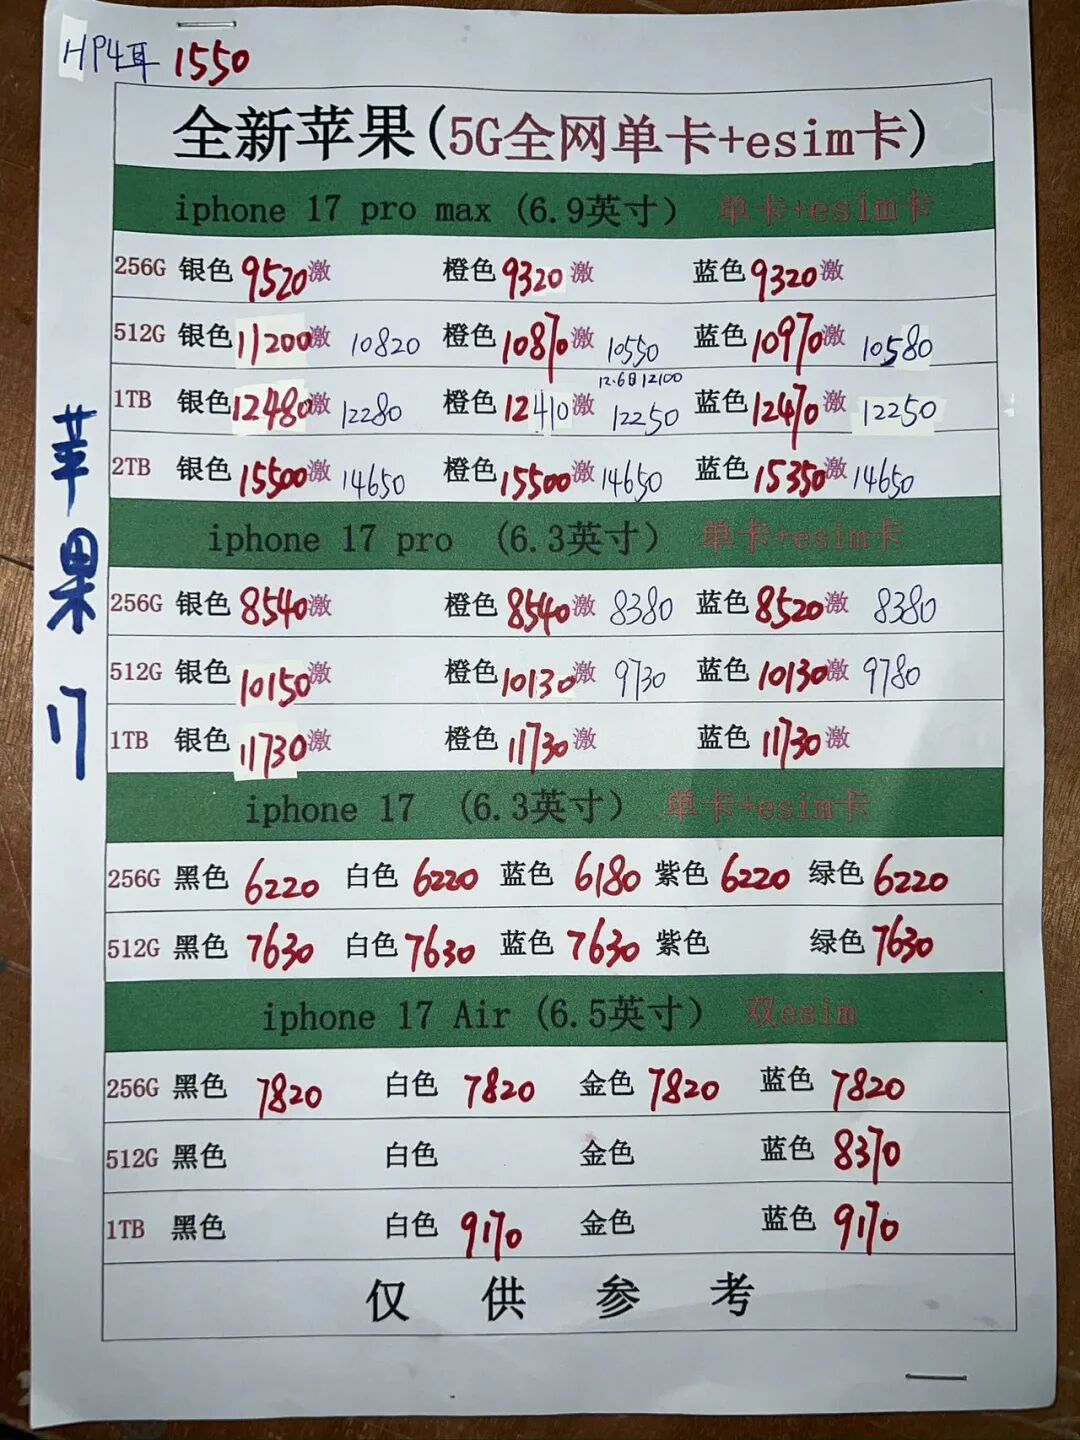 HP4耳 1550
全新苹果(5G全网单卡+esim卡)
iphone 17 pro max (6.9英寸) 单卡+esim卡
256G 银色 9520 激 橙色 9320 激 蓝色 9320 激
512G 银色 11200 激 10820 橙色 10870 激 10550 蓝色 10970 激 10580
12.6日12100
1TB 银色 12480 激 12280 橙色 12410 激 12250 蓝色 12470 激 12250
2TB 银色 15500 激 14650 橙色 15500 激 14650 蓝色 15350 激 14650
iphone 17 pro (6.3英寸) 单卡+esim卡
256G 银色 8540 激 橙色 8540 激 8380 蓝色 8520 激 8380
512G 银色 10150 激 橙色 10130 激 9730 蓝色 10130 激 9780
1TB 银色 11730 激 橙色 11730 激 蓝色 11730 激
iphone 17 (6.3英寸) 单卡+esim卡
256G 黑色 6220 白色 6220 蓝色 6180 紫色 6220 绿色 6220
512G 黑色 7630 白色 7630 蓝色 7630 紫色 绿色 7630
iphone 17 Air (6.5英寸) 双esim
256G 黑色 7820 白色 7820 金色 7820 蓝色 7820
512G 黑色 白色 金色 蓝色 8370
1TB 黑色 白色 9170 金色 蓝色 9170
仅供参考
苹果17